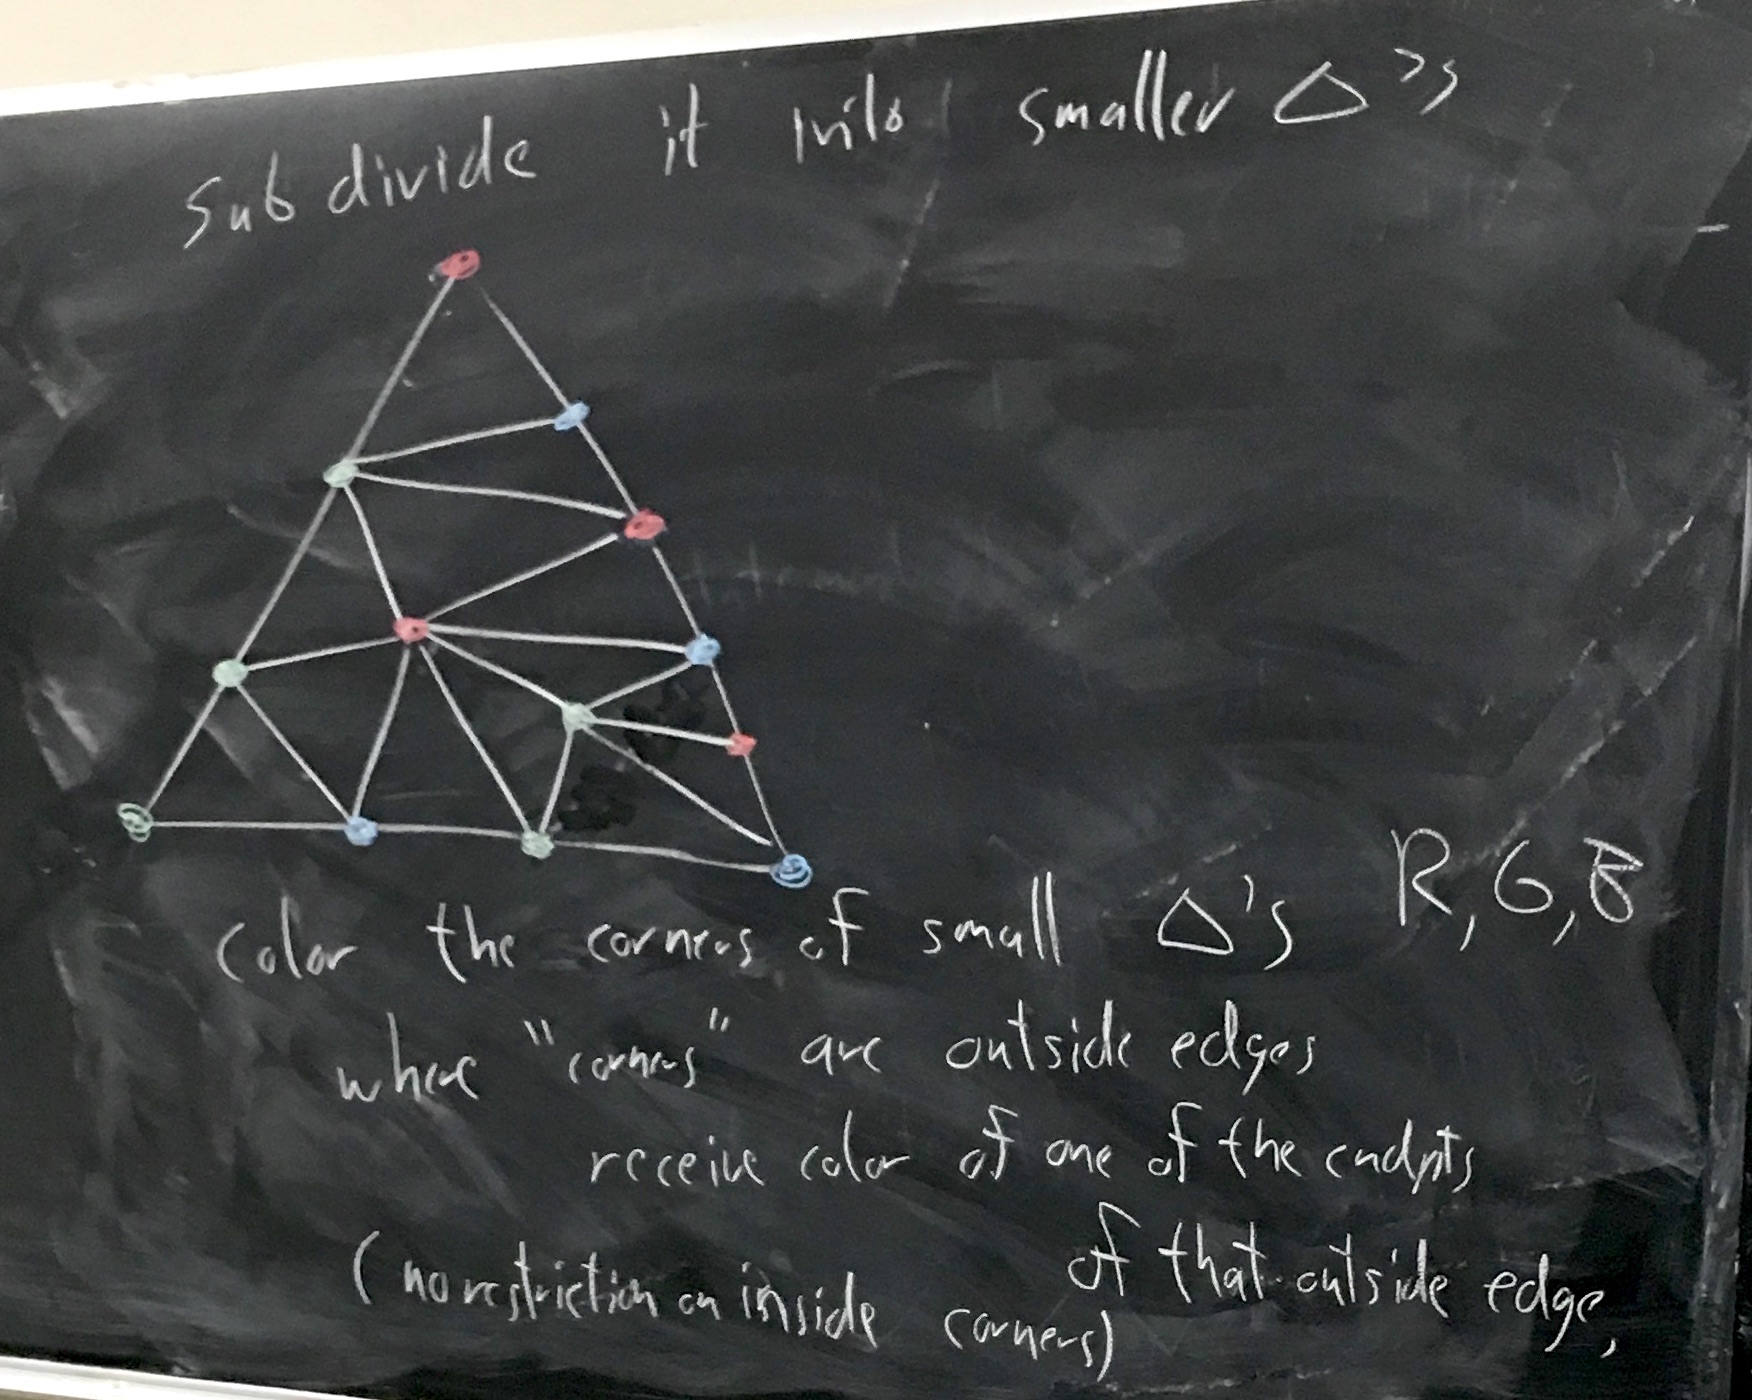 subdivide it into smaller Δ's
color the corners of small Δ's R, G, B
where "corners" are outside edges
receive color of one of the endpts
of that outside edge,
(no restriction on inside corners)